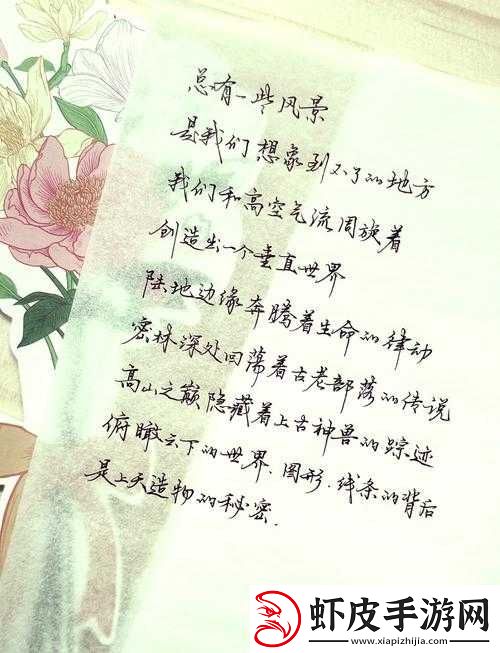 总有一些风景
是我们想象到不了的地方
我们和高空气流周旋着
创造出一个垂直世界
陆地边缘奔腾着生命的律动
密林深处回荡着古老部落的传说
高山之巅隐藏着上古神兽的踪迹
俯瞰云下的世界,图形,线条的背后
是上天造物的秘密.
虾皮手游网
www.xiapizhijia.com